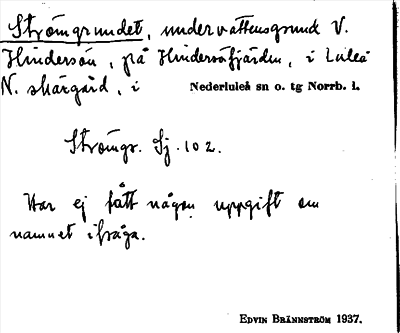 Strömgrundet, undervattensgrund V.
Hindersön, på Hindersöfjärden, i Luleå
N. skärgård, i Nederluleå sn o. tg Norrb. l.
Strömgr. Sj. 102.
Har ej fått någon uppgift om
namnet ifråga.
EDVIN BRÄNNSTRÖM 1937.